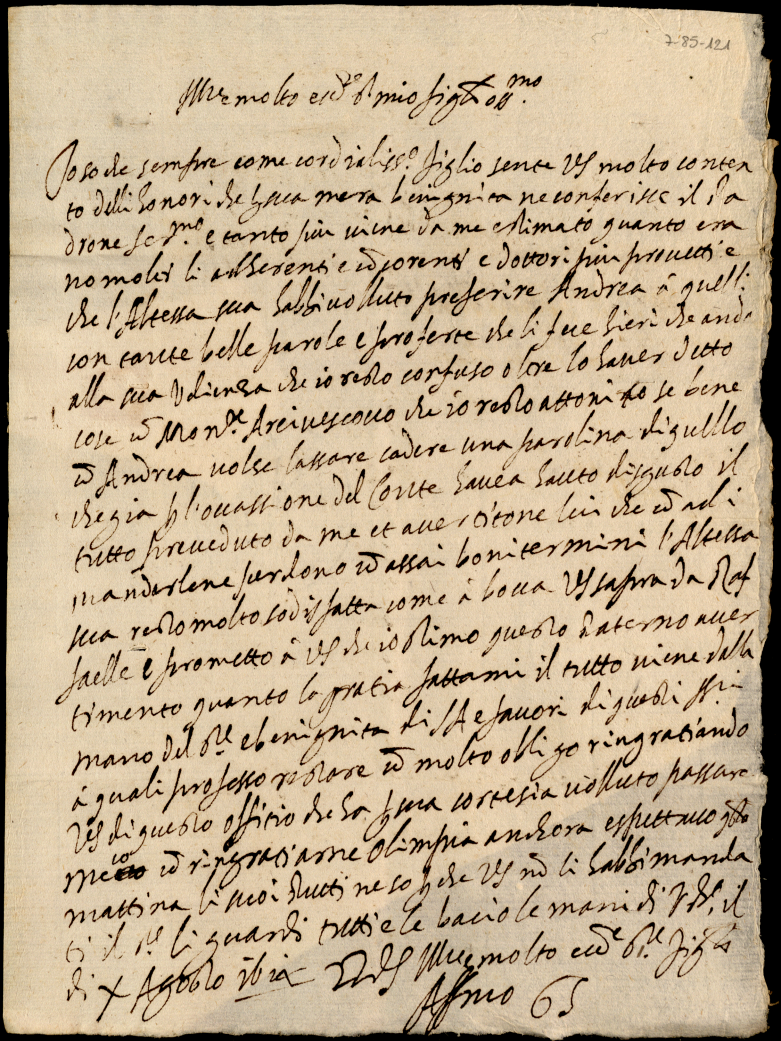 7-85-121
Ill.re molto ecc.te s.r mio sig.r oss.mo
Io so che sempre come cordialiss.o figlio sente VS molto conten
to delli honori che p sua mera benignita ne conferisce il Pa
drone Ser.mo e tanto piu viene da me estimato quanto era
no molti li adherenti e concorrenti e dottori piu provetti e
che l'Altessa sua habbi volluto preferire Andrea à quelli
con tante belle parole e proferte che li fece hieri che andò
alla sua Udienza che io resto confuso oltre lo haver detto
cose con Mon.re Arcivescovo che io resto attonito se bene
con Andrea volse lassare cadere una parolina di quello
che gia p l'occassione del Conte havea hauto disgusto il
tutto preveduto da me et avertitone lui che con adi
manderlene perdono con assai boni termini l'Altessa
sua resto molto sodisfatta come à bocca VS sapra da Raf
faelle e prometto à VS che io stimo questo Paterno aver
timento quanto la gratia fattami il tutto viene dalla
mano del S.re e benignita di SA e favori di questi SS.ri
à quali professo restare con molto obligo ringratiando
VS di questo offitio che ha p sua cortesia volluto passare
meco con ringratiarne Olimpia anchora espettavo q.sta
mattina li suoi Putti ne so p che VS non li habbi manda
ti il S.re li guardi tutti e le bacio le mani di P.sa il
di X Agosto ibia DVS Ill.re molto ecc.te S.re Figlio
Aff.mo GS